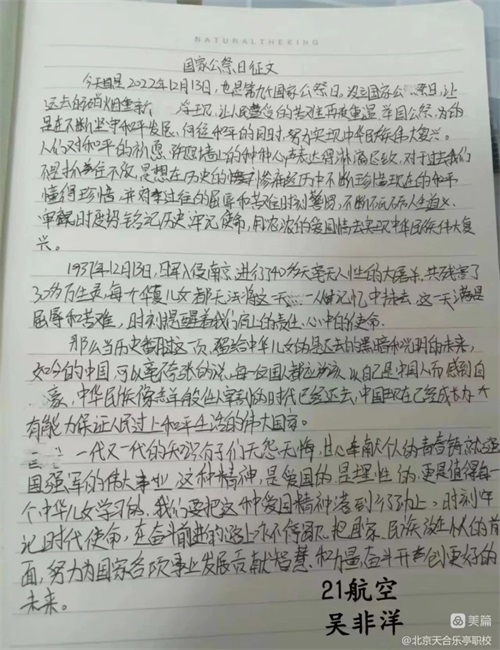 NATURALTHERING
国家公祭日征文
今天是2022年12月13日,也是第九个国家公祭日,设立国家公祭日,让
过去的硝烟重新,让人民遭受的苦难再度重温,举国公祭,为的
是在不断坚守和平发展,向往和平的同时,努力实现中华民族伟大复兴。
人们对和平的祈愿,许愿墙上的种种心声表达得淋漓尽致,对于过去我们
不是抓着住不放,思想在历史的惨痛经历中不断珍惜现在的和平
懂得珍惜,并对过往的屈辱和苦难时刻警惕,不断
时度将铭记历史,牢记使命,用浓浓的爱国情去实现中华民族伟大复
兴。
1937年12月13日,日军入侵南京,进行了40多天毫无人性的大屠杀,共残害了
30多万生灵,每个华夏儿女都无法将这一天从记忆中抹去,这一天满是
屈辱和苦难,时刻提醒着我们肩上的责任、心中的使命。
那么当历史翻过这一页,留给中华儿女的是过去的黑暗和光明的未来,
如今的中国,可以毫不夸张的说,每一位国人都应该以自己是中国人而感到自
豪,中华民族像羔羊般任人宰割的时代已经过去,中国现在已经成长为一个
有能力保证人民过上和平生活的伟大国家。
一代又一代的知识分子们无怨无悔,甘心奉献,从的青春铸就强
国强军的伟大事业,这种精神,是爱国的,是理性的,更是值得每一
个中华儿女学习的,我们要把这种爱国精神落到行动上,时刻牢
记时代使命,在奋斗前进的路上永不停歇,把国家、民族放在个人的前
面,努力为国家各项事业发展贡献智慧和力量,奋斗开创更好的
未来。
21航空
吴非洋
美篇
@北京天合乐亭职校